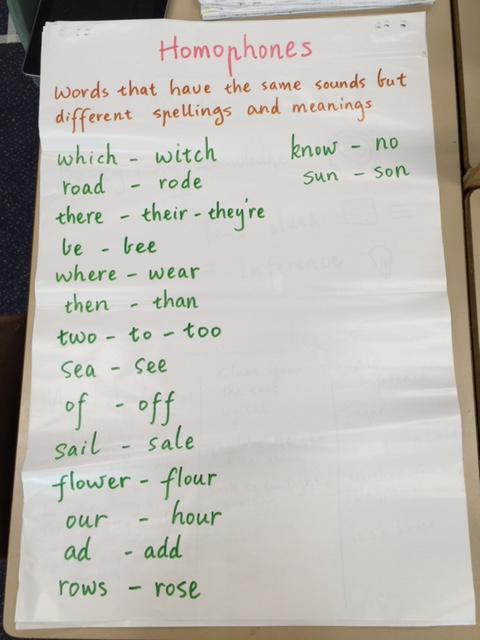 Homophones
Words that have the same sounds but
different spellings and meanings
which - witch
road - rode
there - their - they're
be - bee
where - wear
then - than
two - to - too
sea - see
of - off
sail - sale
flower - flour
our - hour
ad - add
rows - rose
know - no
sun - son